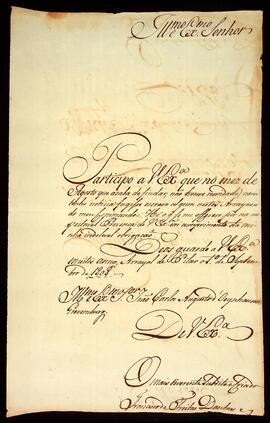 Illmo e Exmo Senhor
Participo a V Exa que no mez de
Agosto que acaba de findar, não houve
noticia fugisse escravo algum neste Arrayal
do meu Commando. He o q se me offerece por na
prezença de V Ex em cumprimento da
minha obrigação
Deos guarde a V Exa
muitos annos, Arrayal do Pilar 1º de Septem
bro de
Illmo e Exmo Snr João Carlos Augusto d Oeynhausen
Gravemburg
De V. Exa
O mais reverente Subdito e Criado
Francisco de Freitas